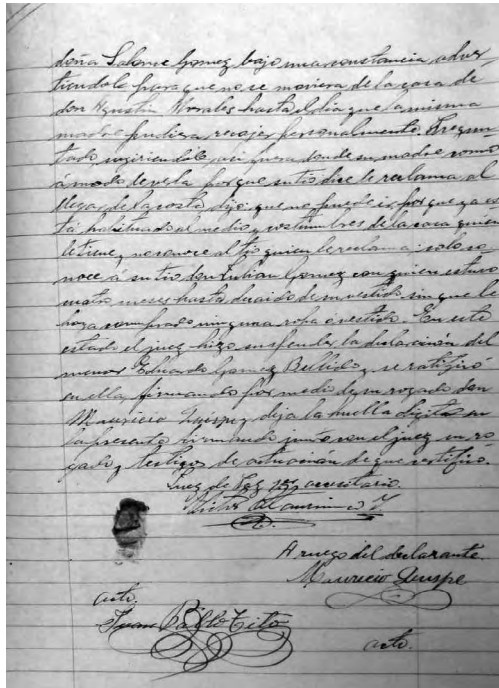 doña Salome Gomez, bajo una constancia adver,
tiendole para que no se moviera de la casa de
don Agustin Morales hasta el dia que la misma
madre pudiera recojer personalmente. Pregun
tado sugiriendole asi fuera donde su madre como
á modo de verla porque su tio dise le reclama al
llegar de la costa dijo: que no puede ir, porque ya es
tá habituado al medio y costumbres de la casa quien
le tiene, y no conoce al tio quien le reclama: solo co
noce á su tio don Julian Gomez con quien estuvo
cuatro meses hasta decaido de su vestido sin que le
haya comprado ninguna ropa ó vestido. En este
estado el juez hizo suspender la declaración del
menor Eduardo Gomez Bellido, se ratificó
en ella, firmando por medio de su rogado don
Mauricio Quispe, deja la huella digital en
la presente firmando junto con el juez su ro
gado, y testigos de actuación de que certifico.
Juez de Paz 2º accesitario.
Victor
A ruego del declarante.
Mauricio Quispe
acto.
Juan Pablo Tito
acto.